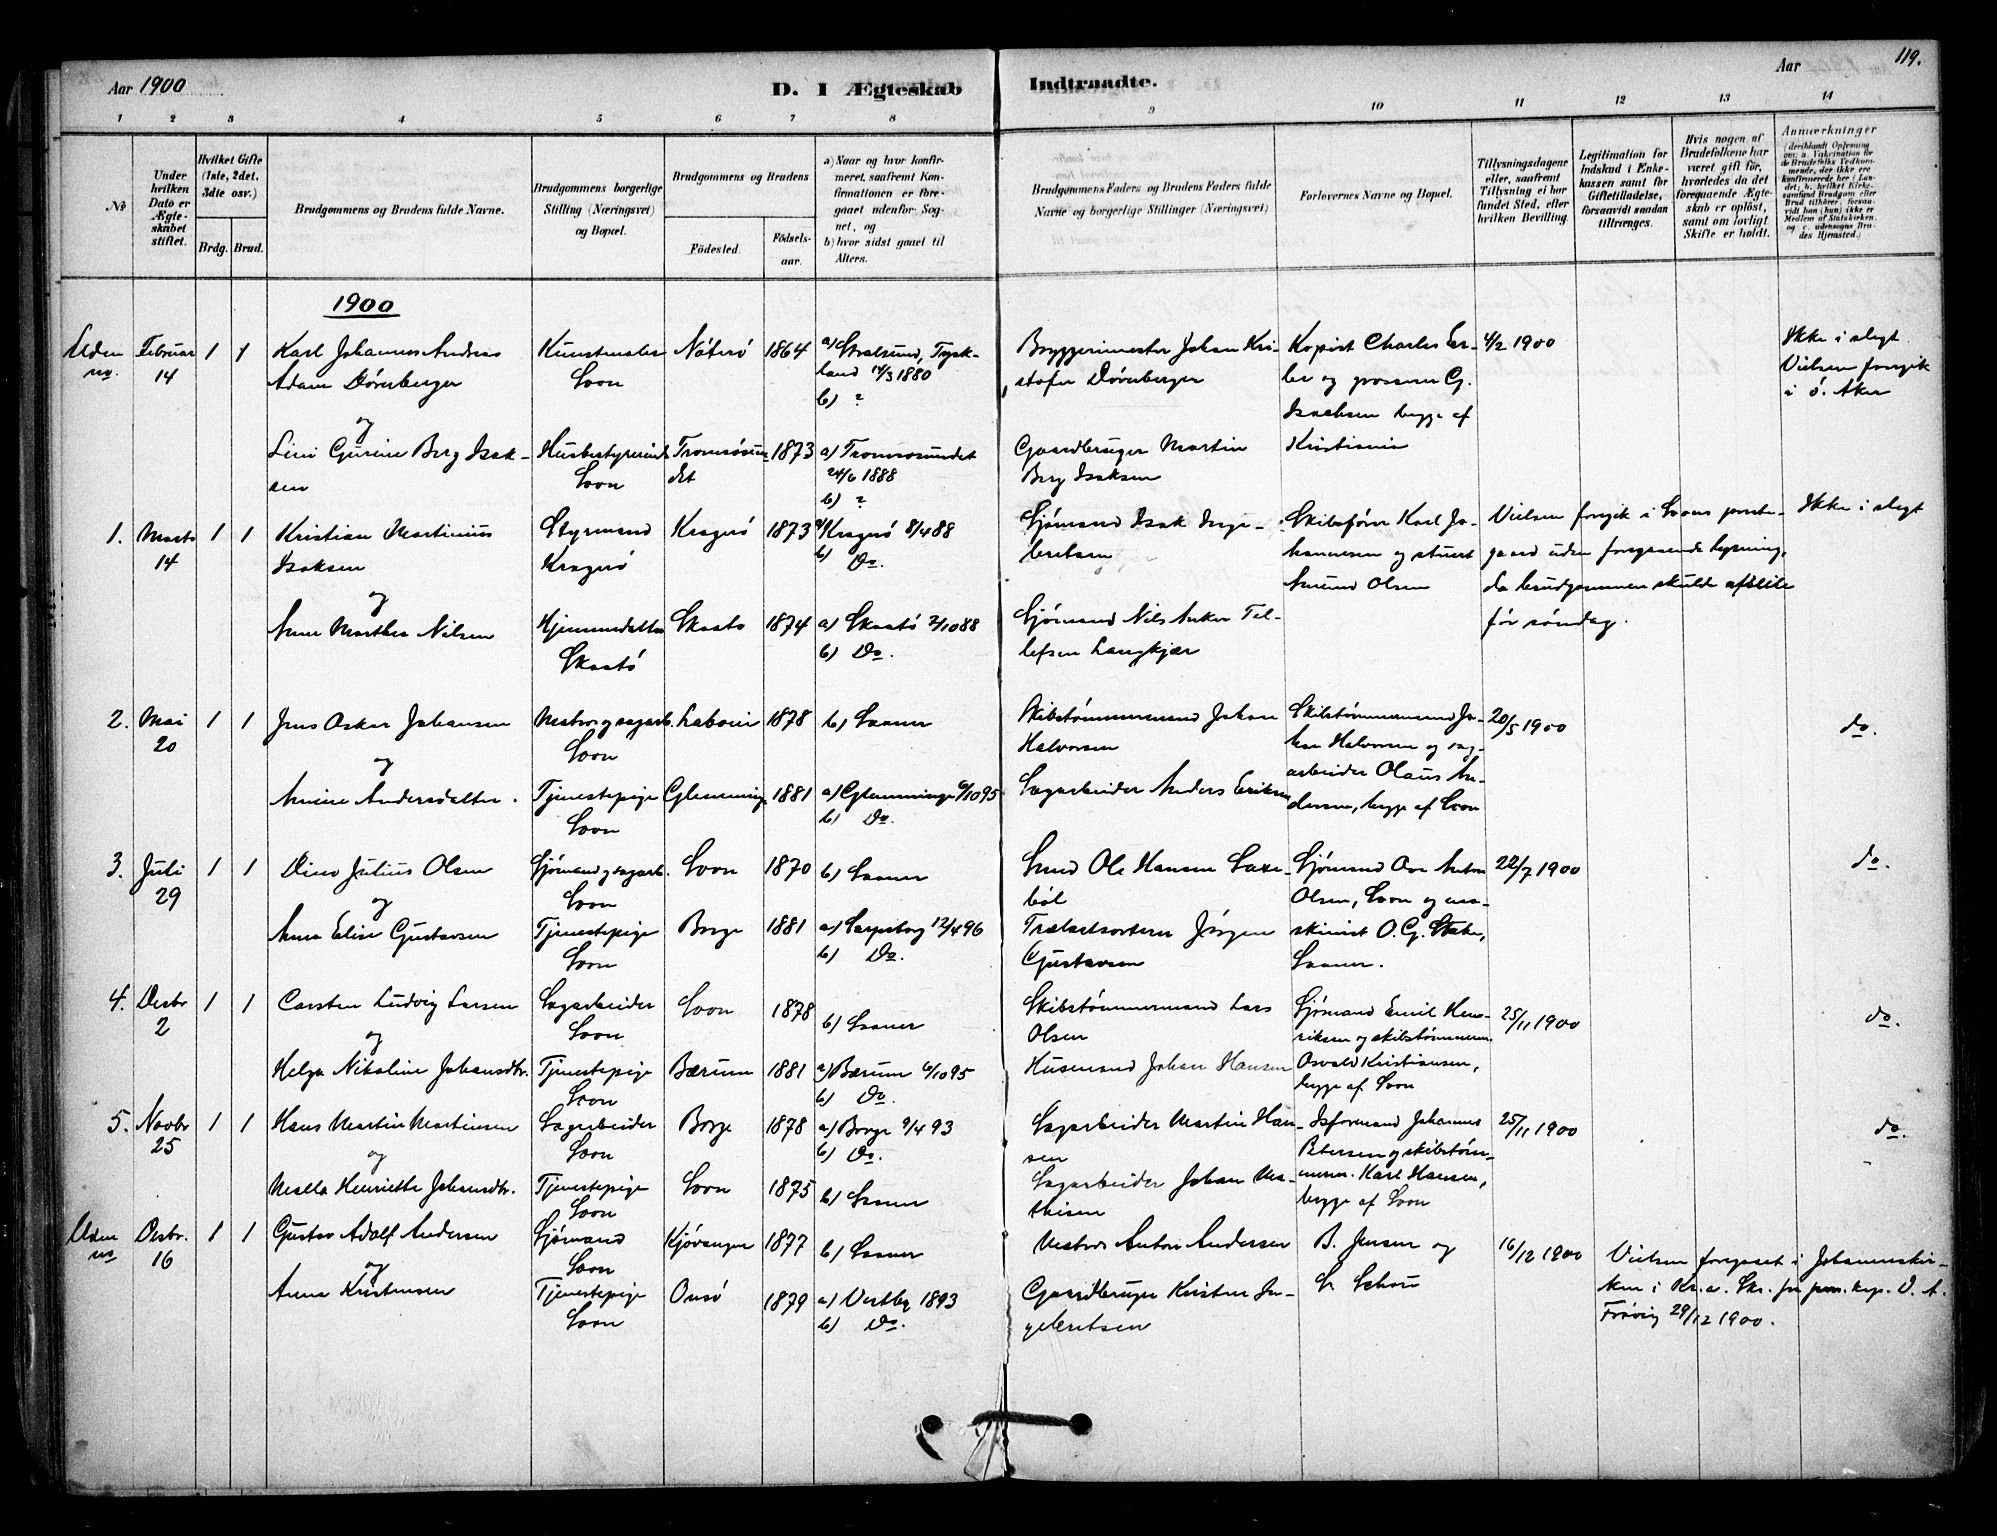 Aar 1900
D. I Ægteskab
Indtraadte.
Aar
119.
1 2 3 4 5 6 7 8
9 10 11 12 13 14
No
Under hvilken Dato er Ægteskabet stiftet.
Hvilket Gifte (1ste, 2det, 3die osv.)
Brdg. Brud.
Brudgommens og Brudens fulde Navne.
Brudgommens borgerlige Stilling (Næringsvei) og Bopæl.
Brudgommens og Brudens
Födested.
Födselsaar.
a) Naar og hvor konfirmeret, saafremt Konfirmationen er foregaaet udenfor Sognet, og
b) hvor sidst gaaet til Alters.
Brudgommens Faders og Brudens Faders fulde Navne og borgerlige Stillinger (Næringsvei)
Forlovernes Navne og Bopæl.
Tillysningsdagene eller, saafremt Tillysning ei har fundet Sted, efter hvilken Bevilling.
Legitimation for Indskud i Enkekassen samt for Giftetilladelse, forsaavidt saadan tiltrænges.
Hvis nogen af Brudefolkene har været gift før, hvorledes da det foregaaende Ægteskab er opløst, samt om lovligt Skifte er holdt.
Anmærkninger
(deriblandt Oplysning om: a. Vakcination for de Brudefolks Vedkommende, der ikke ere konfirmerede her i Landet; b. hvilket Kirkesamfund Brudgom eller Brud tilhörer, forsaavidt han (hun) ikke er Medlem af Statskirken, og c. udensogns Brudes Hjemsted.)
1900
Uden no. Februar 14 1 1 Karl Johannes Andreas
Adam Dörnberger
Kunstmaler
Soon
Nøterø 1864 a) Stralsund, Tyskland 14/3 1880
b) ?
Bryggerimester Johan Kristofer Dörnberger
Kopist Charles
og grosserer G.
Isachsen begge af
Kristiania
4/2 1900
Ikke i slegt
Vielsen foregik
i ö. Aker
og
Lini Gurine Berg Isaksen
Husbestyrerinde
Soon
Tromsøsundet 1873 a) Tromsosundet
24/6 1888
b) ?
Gaardbruger Martin
Berg Isaksen
1. Marts 14 1 1 Kristian Martinius
Isaksen
Styrmand
Kragerø
Kragerø 1873 a) Kragerø 8/4 88
b) Do.
Sjømand Isak Ingebretsen
Skibsfører Karl Johannesen og stuert
Amund Olsen
Vielsen foregik i Soons prestegaard uden foregaaende lysning,
da brudgommen skulde afseile
før søndag.
Ikke i slegt
og
Anne Marthea Nilsen
Hjemmedatter
Skaatø
Skaatø 1874 a) Skaatø 2/10 88
b) Do.
Sjømand Nils Anker Tellefsen Langkjær
2. Mai 20 1 1 Jens Oskar Johansen
Soon
1878 b) Saaner
Skibstømmermand Johan
Halvorsen
Skibstømmermand Johan Halvorsen og sagarbeider Olaus Andersen, begge af Soon
20/5 1900
do.
og
Amine Andersdatter.
Tjenestepige
Soon
Glemminge 1881 a) Glemminge 6/10 95
b) Do.
Sagarbeider Anders Eriksen
3. Juli 29 1 1 Julius Olsen
Sjømand og sagarb.
Soon
Soon 1870 b) Saaner
Smed Ole Hansen
Sjømand Ove Anton
Olsen, Soon og maskinist O. G.
Saaner.
22/7 1900
do.
og
Anna Elise Gustavsen
Tjenestepige
Soon
Borge 1881 a) Sarpsborg 12/4 96
b) Do.
Trælastsorterer Jørgen
Gustavsen
4. Desbr 2 1 1 Carsten Ludvig Larsen
Sagarbeider
Soon
Soon 1878
b) Saaner
Skibstømmermand Lars
Olsen
Sjømand Emil Henriksen og skibstømmerm.
Osvald Kristiansen,
begge af Soon
25/11 1900
do.
og
Helga Nikoline Johansdtr.
Tjenestepige
Soon
Bærum 1881 a) Bærum 6/10 95
b) Do.
Husmand Johan Hansen
5. Novbr 25 1 1 Hans Martin Martinsen
Sagarbeider
Soon
Borge 1878 a) Borge 9/4 93
b) Do.
Sagarbeider Martin Hansen
Isformand Johannes
Petersen og skibstømmerm. Karl Hansen,
begge af Soon
25/11 1900
do.
og
Henriette Johansdtr.
Tjenestepige
Soon
Soon 1875 b) Saaner
Sagarbeider Johan Mathisen
Uden no Desbr. 16 1 1 Gustav Adolf Andersen
Sjømand
Soon
Kjøvangen 1877 b) Saaner
Anton Andersen
B. Jensen og
S. Schou
16/12 1900
Vielsen foregaaet i Johanneskirken i Kr.a.
Frøvig 29/12 1900.
og
Anna Kristensen
Tjenestepige
Soon
Onsø 1879 a) Vestby 1893
b) Do.
Gaardbruger Kristen Ingebretsen